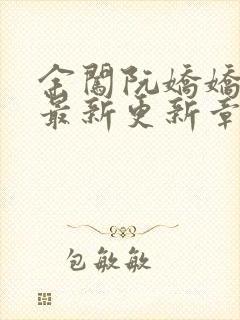 金闺阮嬌嬌
最新更新章
包敏敏